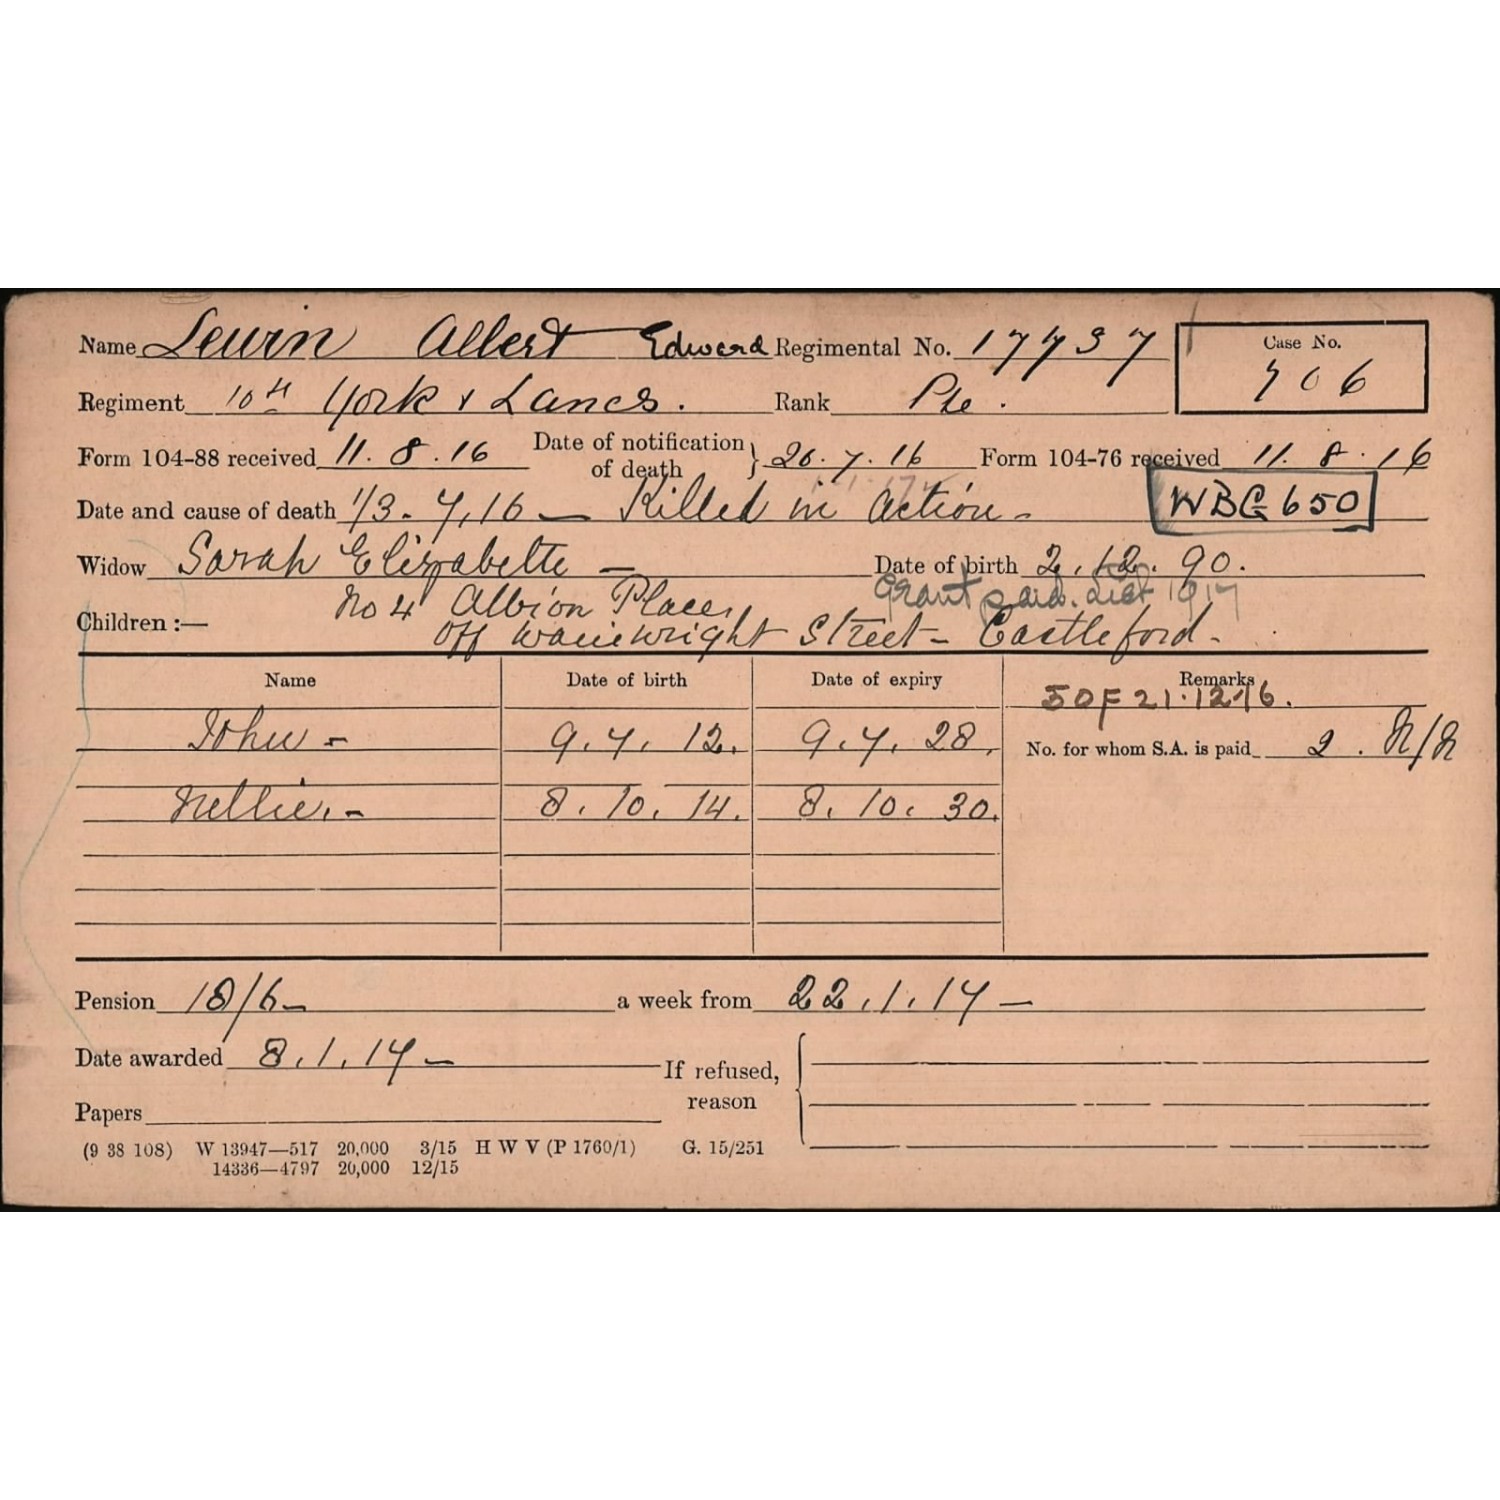 Name Lewin Albert Edward Regimental No. 17737 Case No.
706
Regiment 10th York & Lancs. Rank Pte.
Form 104-88 received 11.8.16 Date of notification of death } 26.7.16 Form 104-76 received 11.8.16
Date and cause of death 1/3-7.16 — Killed in action - WBG 650
Widow Sarah Elizabeth — Date of birth 2.12.90.
No 4 Albion Place, Grant paid. 1917
Children :— Off Wainwright Street - Castleford -
Name Date of birth Date of expiry Remarks
50F 21.12.16.
John - 9.7.12. 9.7.28. No. for whom S.A. is paid 2. N/N
Nellie. - 8.10.14. 8.10.30.
Pension 18/6 - a week from 22.1.17 —
Date awarded 8.1.17 — If refused, reason
Papers
(9 38 108) W 13947—517 20,000 3/15 H W V (P 1760/1) G. 15/251
14336—4797 20,000 12/15